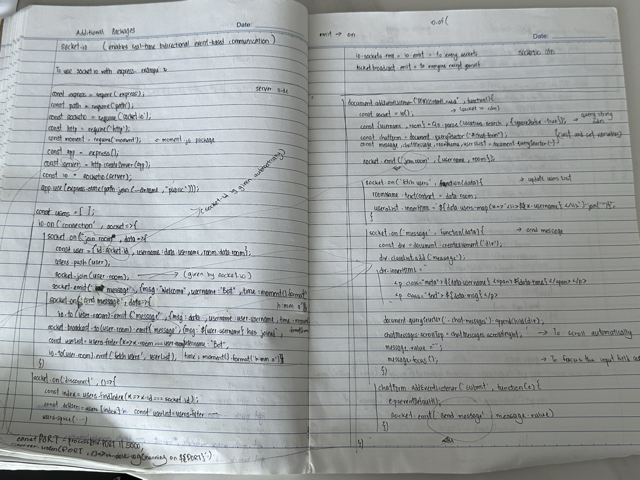 Additional Packages
Date:
socket.io (enables real-time bidirectional event-based communication)
To use socket.io with express
server side
const express = require('express');
const path = require('path');
const socketio = require('socket.io');
const http = require('http');
const moment = require('moment'); ← moment.js package
const app = express();
const server = http.createServer(app);
const io = socketio(server);
app.use(express.static(path.join(__dirname, "public")));
(socket.id is given automatically)
const users = [ ];
io.on('connection', socket=>{
socket.on('join room', data=>{
const user = {id: socket.id, username: data.username, room: data.room};
users.push(user);
socket.join(user.room); → (given by socket.io)
socket.emit('message', {msg: "Welcome", username: "Bot", time: moment().format(
h:mm a')});
socket.on('send message', data=>{
io.to(user.room).emit("message", {msg: data, username: user.username, time: moment
socket.broadcast.to(user.room).emit('message', {msg: `${user.username} has joined`,
const userList = users.filter(x=>x.room === user.room) username: "Bot",
io.to(user.room).emit('fetch users', userList); time: moment().format('h:mm a')});
})
socket.on('disconnect', ()=>{
const index = users.findIndex(x=>x.id === socket.id);
const userList = users.filter
users.splice(
})
const PORT = process.env.PORT || 5000;
server.listen(PORT, ()=>console.log(`running on ${PORT}`)
emit → on
Date:
io.emit = to every sockets
socket.broadcast.emit = to everyone except yourself
document.addEventListener('DOMContentLoaded', function(){
const socket = io();
const {username, room} = Qs.parse(location.search, {ignoreQueryPrefix: true}); query string
cdn
const chatForm = document.querySelector('#chat-form');
const message, chatMessages, roomName, userList = document.querySelector(
socket.emit('join room', {username, room});
socket.on('fetch users', function(data){ → update users list
roomName.textContent = data.room;
userList.innerHTML = `${data.users.map(x=>`<li>${x.username}</li>`).join('')}`;
}
socket.on('message', function(data){ → send message
const div = document.createElement('div');
div.classList.add('message');
div.innerHTML = `
<p class="meta">${data.username}<span>${data.time}</span></p>
<p class="text">${data.msg}</p>
`
document.querySelector('.chat-messages').appendChild(div);
chatMessages.scrollTop = chatMessages.scrollHeight; → To scroll automatically
message.value = '';
message.focus(); → To focus the input
})
chatForm.addEventListener('submit', function(e){
e.preventDefault();
socket.emit('send message', message.value)
})